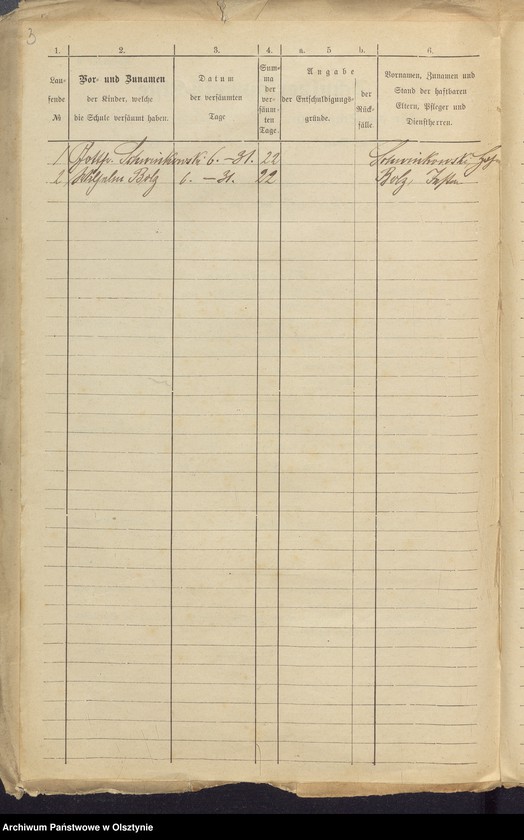 3
1. 2. 3. 4. a. 5 b. 6.
Lau-
fende
№
Vor- und Zunamen
der Kinder, welche
die Schule versäumt haben.
Datum
der versäumten
Tage
Sum-
ma
der
ver-
säum-
ten
Tage.
Angabe
der Entschuldigungs-
gründe.
der
Rück-
fälle.
Vornamen, Zunamen und
Stand der haftbaren
Eltern, Pfleger und
Dienstherren.
1 Gottfr. Schwinkowski 6. - 31. 22 Schwinkowski
2 Wilhelm Bolz 6. - 31. 22 Bolz,
Archiwum Państwowe w Olsztynie